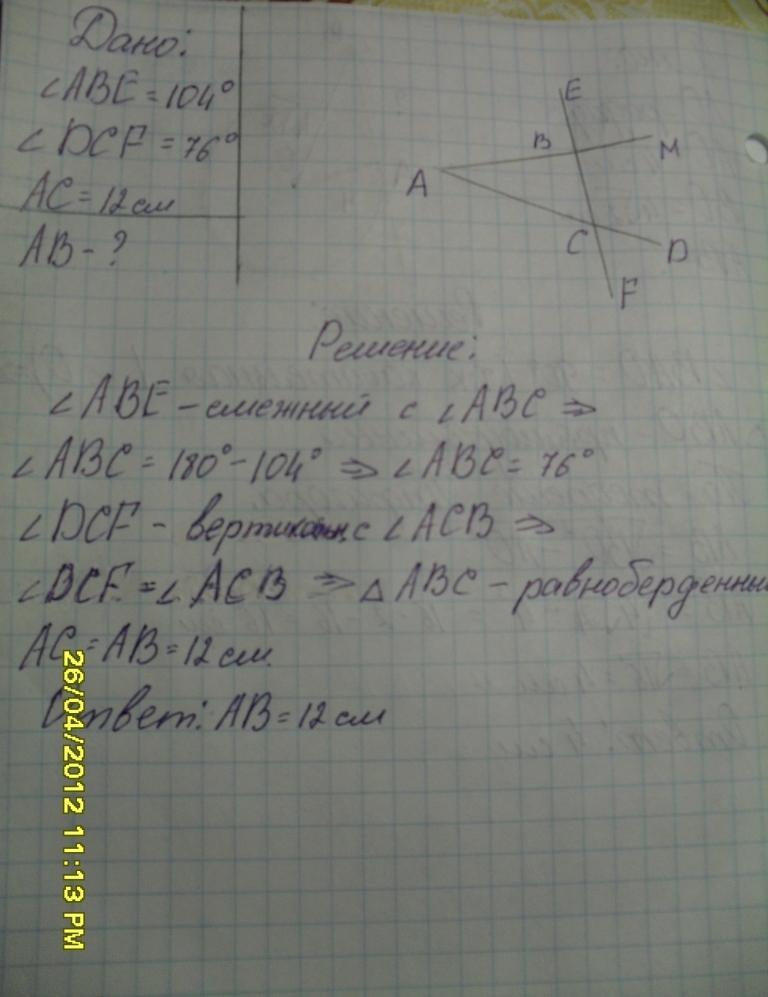 Дано:
∠ABE = 104°
∠DCF = 76°
AC = 12 см
AB - ?
E
B
M
A
C
D
F
Решение:
∠ABE - смежный с ∠ABC ⇒
∠ABC = 180° - 104° ⇒ ∠ABC = 76°
∠DCF - с ∠ACB ⇒
∠BCF = ∠ACB ⇒ △ABC - равноберденный
AC = AB = 12 см.
Ответ: AB = 12 см
26/04/2012 11:13 PM